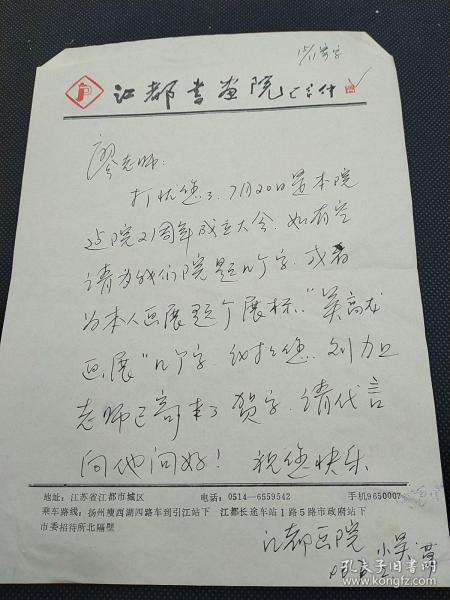 江都书画院
廖老师：
打忧您了，7月20日是本院
建院21周年成立大会，如有空
请为我们院题几个字，或者
为本人画展题个展标，“吴高龙
画展”几个字，
老师已寄来了贺字，请代言
向他问好！祝您快乐
地址：江苏省江都市城区 电话：0514—6559542 手机9650007
乘车路线：扬州瘦西湖四路车到引江站下 江都长途车站1路5路市政府站下
市委招待所北隔壁
江都画院
小吴
孔夫子旧书网